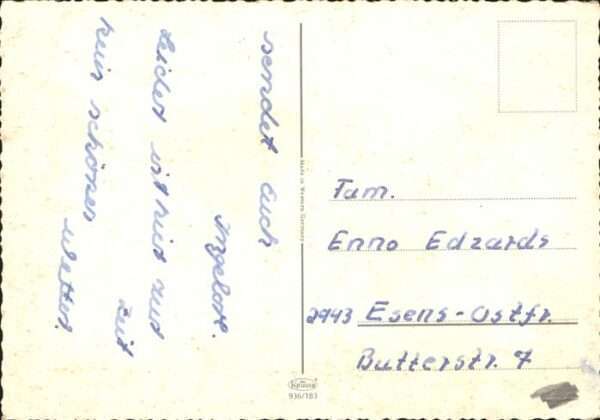 sendet Euch
Ingelore.
Leider ist hier zur
Zeit
kein schönes
Wetter.
Made in Western Germany
Fam.
Enno Edzards
2943 Esens-Ostfr.
Butterstr. 7
Krüger
936/183